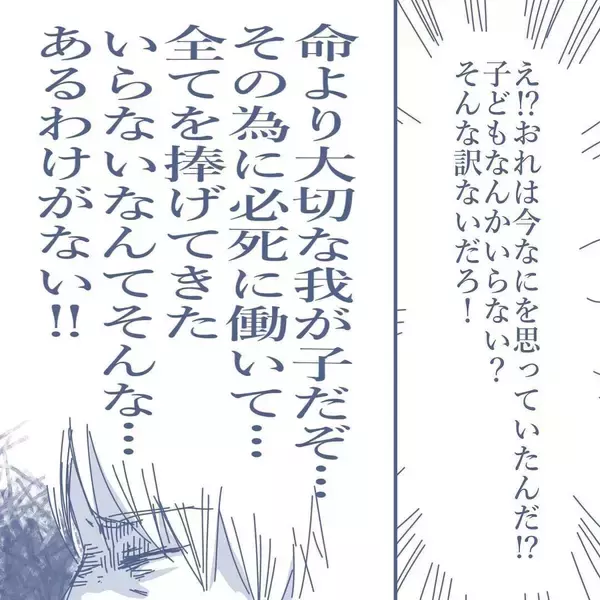 え!?おれは今なにを思っていたんだ!?
子どもなんかいらない?
そんな訳ないだろ!
命より大切な我が子だぞ…
その為に必死に働いて…
全てを捧げてきた
いらないなんてそんな…
あるわけがない!!